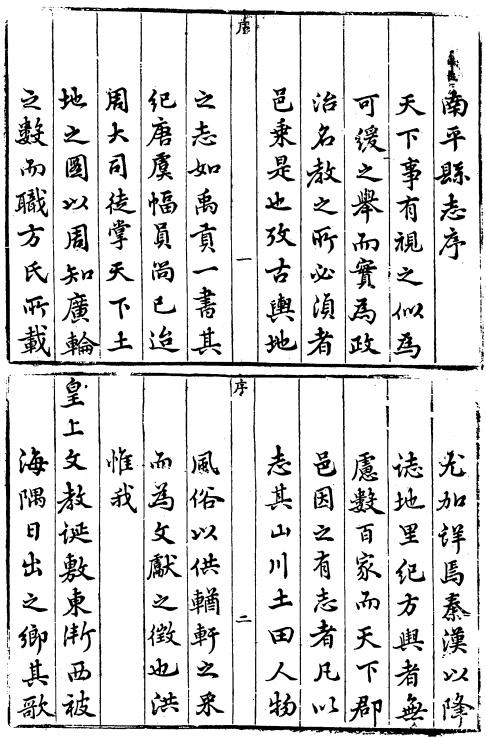 南平縣志序
天下事有視之似為
可緩之舉而實為政
治名教之所必湏者
邑乗是也攷古輿地
序
一
之志如禹貢一書其
紀唐虞幅員尚已迨
周大司徒掌天下土
地之圖以周知廣輪
之數而職方氏所載
尤加詳焉秦漢以降
誌地里紀方輿者無
慮數百家而天下郡
邑因之有志者凡以
志其山川土田人物
序
二
風俗以供輶軒之采
而為文獻之徵也洪
惟我
皇上文教誕敷東漸西被
海隅日出之鄉其歌